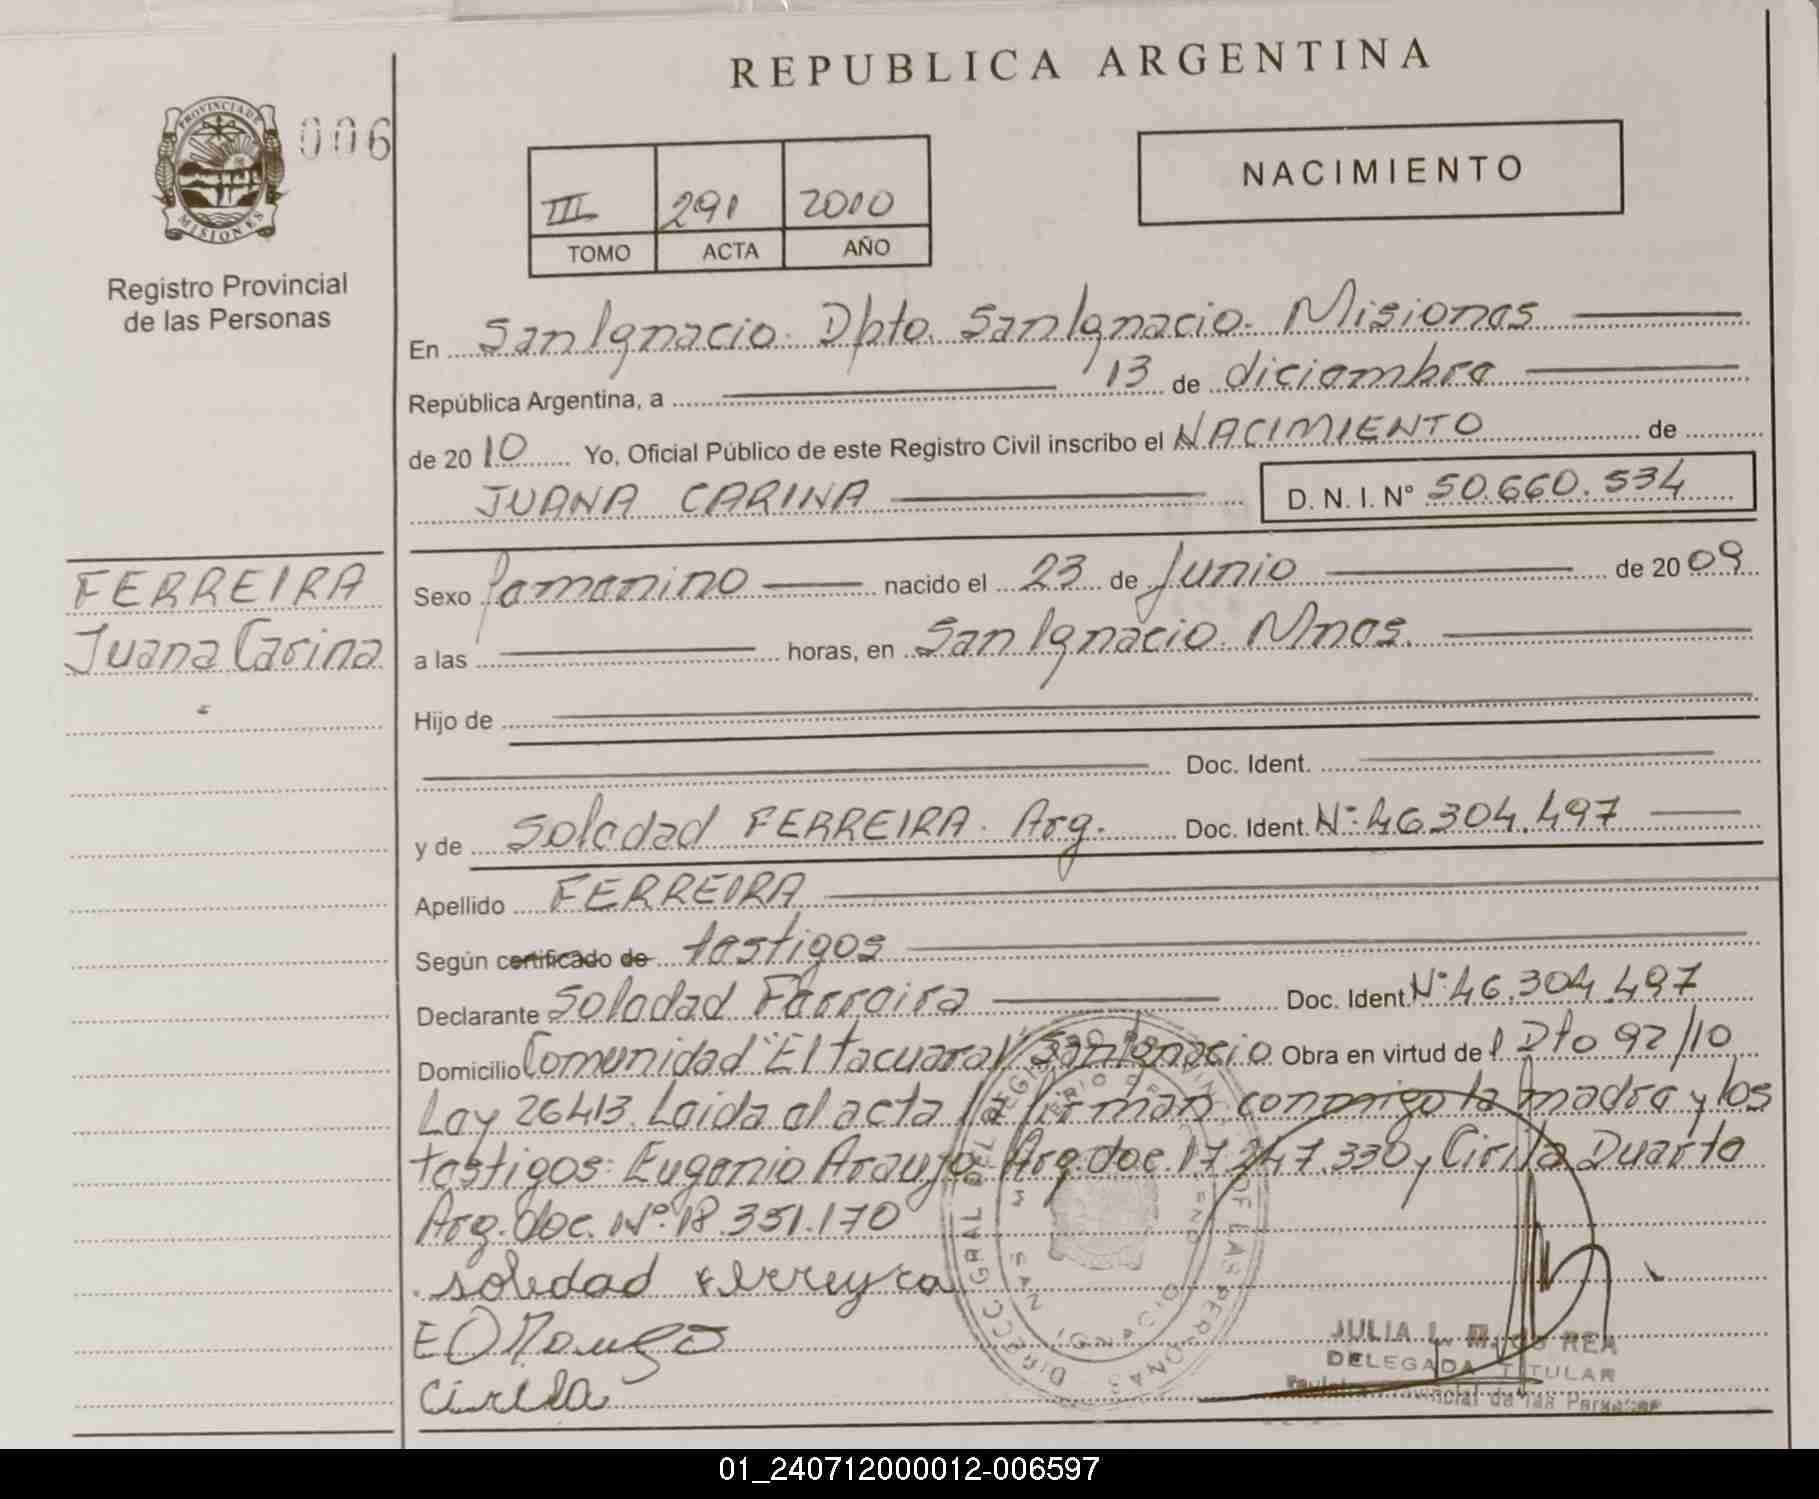 REPUBLICA ARGENTINA
PROVINCIA DE MISIONES
006
Registro Provincial
de las Personas
III 291 2010
TOMO ACTA AÑO
NACIMIENTO
En San Ignacio. Dpto. San Ignacio. Misiones
República Argentina, a 13 de diciembre
de 2010 Yo, Oficial Público de este Registro Civil inscribo el NACIMIENTO de
JUANA CARINA D. N. I. Nº 50.660.534
FERREIRA
Juana Carina
Sexo femenino nacido el 23 de Junio de 2009
a las horas, en San Ignacio. Mnes.
Hijo de
Doc. Ident.
y de Soledad FERREIRA. Arg. Doc. Ident. Nº 46.304.497
Apellido FERREIRA
Según certificado de testigos
Declarante Soledad Ferreira Doc. Ident Nº 46.304.497
Domicilio Comunidad "El tacuaral" San Ignacio Obra en virtud del Dto 92/10
Ley 26413. Leida el acta la firman conmigo la madre y los
testigos: Eugenio Araujo. Arg. doc. 17.247.330 y Cirila Duarte
Arg. doc. Nº 18.351.170
soledad Ferreyra
Cirila
DIRECC GRAL DEL REGISTRO PROVINCIAL DE LAS PERSONAS
SAN IGNACIO
JULIA L. REA
DELEGADA TITULAR
Registro Provincial de las Personas
01_240712000012-006597